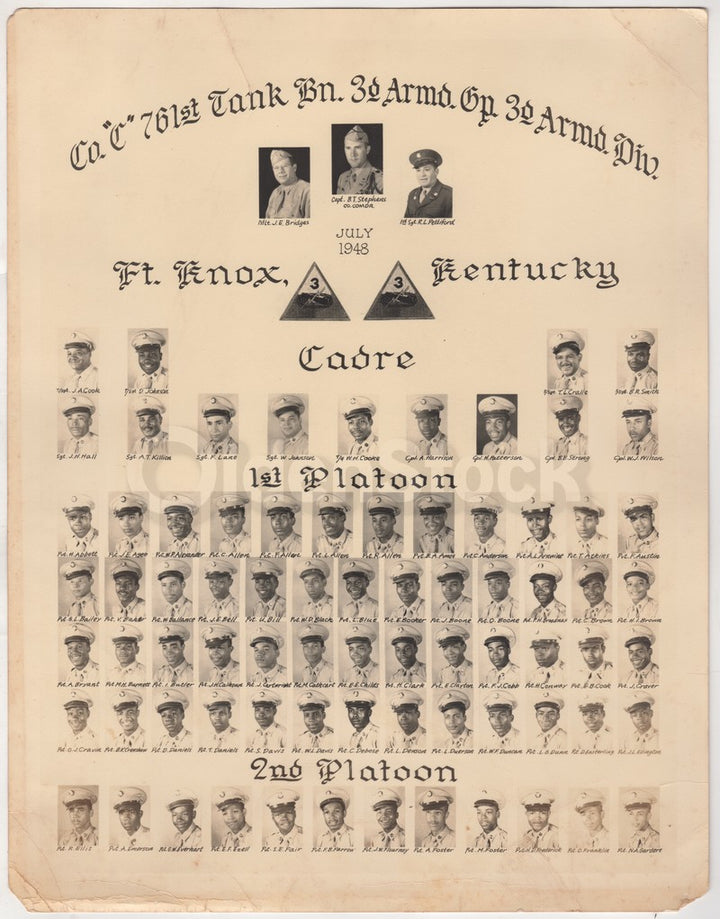 Co. "C" 761st Tank Bn. 3d Armd. Gp. 3d Armd. Div.
1st Lt. J.E. Bridges Capt. B.T. Stephens 1st Sgt. R.L. Pettiford
CO. COMDR.
JULY
1948
Ft. Knox, Kentucky
3 3
Cadre
J.A. Cook D. Johnson T.L. Craile B.R. Smith
Sgt. J.H. Hall Sgt. A.T. Killion Sgt. F. Lane Sgt. W. Johnson W.H. Cooke Cpl. A. Harrison Cpl. N. Patterson Cpl. B.B. Strong Cpl. W.J. Wilson
1st Platoon
Pvt. H. Abbott Pvt. J.E. Agee Pvt. W.P. Alexander Pvt. C. Allen Pvt. F. Allen Pvt. L. Allen Pvt. R. Allen Pvt. B.A. Pvt. C. Anderson Pvt. A.L. Pvt. T. Atkins Pvt. F. Austin
Pvt. S.L. Bailey Pvt. V. Baker Pvt. W. Ballance Pvt. J.E. Bell Pvt. U. Bill Pvt. W.D. Black Pvt. L. Blue Pvt. E. Booker Pvt. J. Boone Pvt. O. Boone Pvt. F.H. Broadnax Pvt. C. Brown Pvt. H.V. Brown
Pvt. A. Bryant Pvt. M.H. Burnett Pvt. I. Butler Pvt. J.H. Calhoun Pvt. J. Cartwright Pvt. M. Cathcart Pvt. E.E. Childs Pvt. H. Clark Pvt. E. Clayton Pvt. F.J. Cobb Pvt. H. Conway Pvt. E.B. Cook Pvt. J. Craver
Pvt. O.J. Cravin Pvt. B.K. Crenshaw Pvt. D. Daniels Pvt. T. Daniels Pvt. S. Davis Pvt. W.L. Davis Pvt. C. Debose Pvt. L. Denson Pvt. L. Duerson Pvt. W.F. Duncan Pvt. L.B. Dunn Pvt. D. Easterling Pvt. J.L. Edington
2nd Platoon
Pvt. R. Ellis Pvt. A. Emerson Pvt. G.W. Everhart Pvt. E.F. Ezell Pvt. S.E. Fair Pvt. F.B. Farrow Pvt. J.W. Flournoy Pvt. A. Foster Pvt. M. Foster Pvt. Frederick Pvt. D. Franklin Pvt. N.A. Gardere